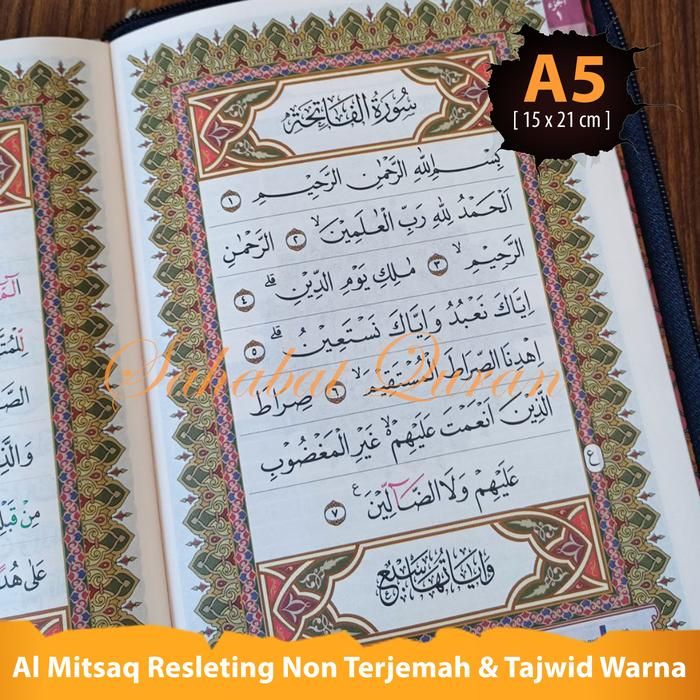 A5
[ 15 x 21 cm ]
الجزء
١
سُورَةُ الْفَاتِحَةِ
بِسْمِ اللهِ الرَّحْمٰنِ الرَّحِيْمِ ١
اَلْحَمْدُ لِلهِ رَبِّ الْعٰلَمِيْنَ ۙ ٢ الرَّحْمٰنِ
الرَّحِيْمِ ۙ ٣ مٰلِكِ يَوْمِ الدِّيْنِ ۗ ٤
اِيَّاكَ نَعْبُدُ وَاِيَّاكَ نَسْتَعِيْنُ ۗ ٥
اِهْدِنَا الصِّرَاطَ الْمُسْتَقِيْمَ ۙ ٦ صِرَاطَ
الَّذِيْنَ اَنْعَمْتَ عَلَيْهِمْ ۙ غَيْرِ الْمَغْضُوْبِ
عَلَيْهِمْ وَلَا الضَّاۤلِّيْنَ ࣖ ٧
ع
وَاٰيَاتُهَا سَبْعٌ
مِنْ قَبْلِ
عَلٰى هُدًى
Sahabat Quran
Al Mitsaq Resleting Non Terjemah & Tajwid Warna